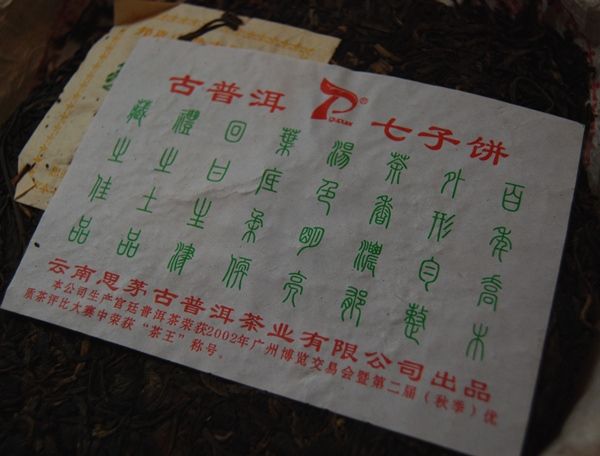 古普洱 ® 七子饼
百年喬木
外形自整
茶香濃郁
湯色明亮
葉底柔
回甘生津
禮之上品
藏之佳品
云南思茅古普洱茶业有限公司出品
本公司生产宫廷普洱茶荣获2002年广州博览交易会暨第二届（秋季）优
质茶评比大赛中荣获“茶王”称号.